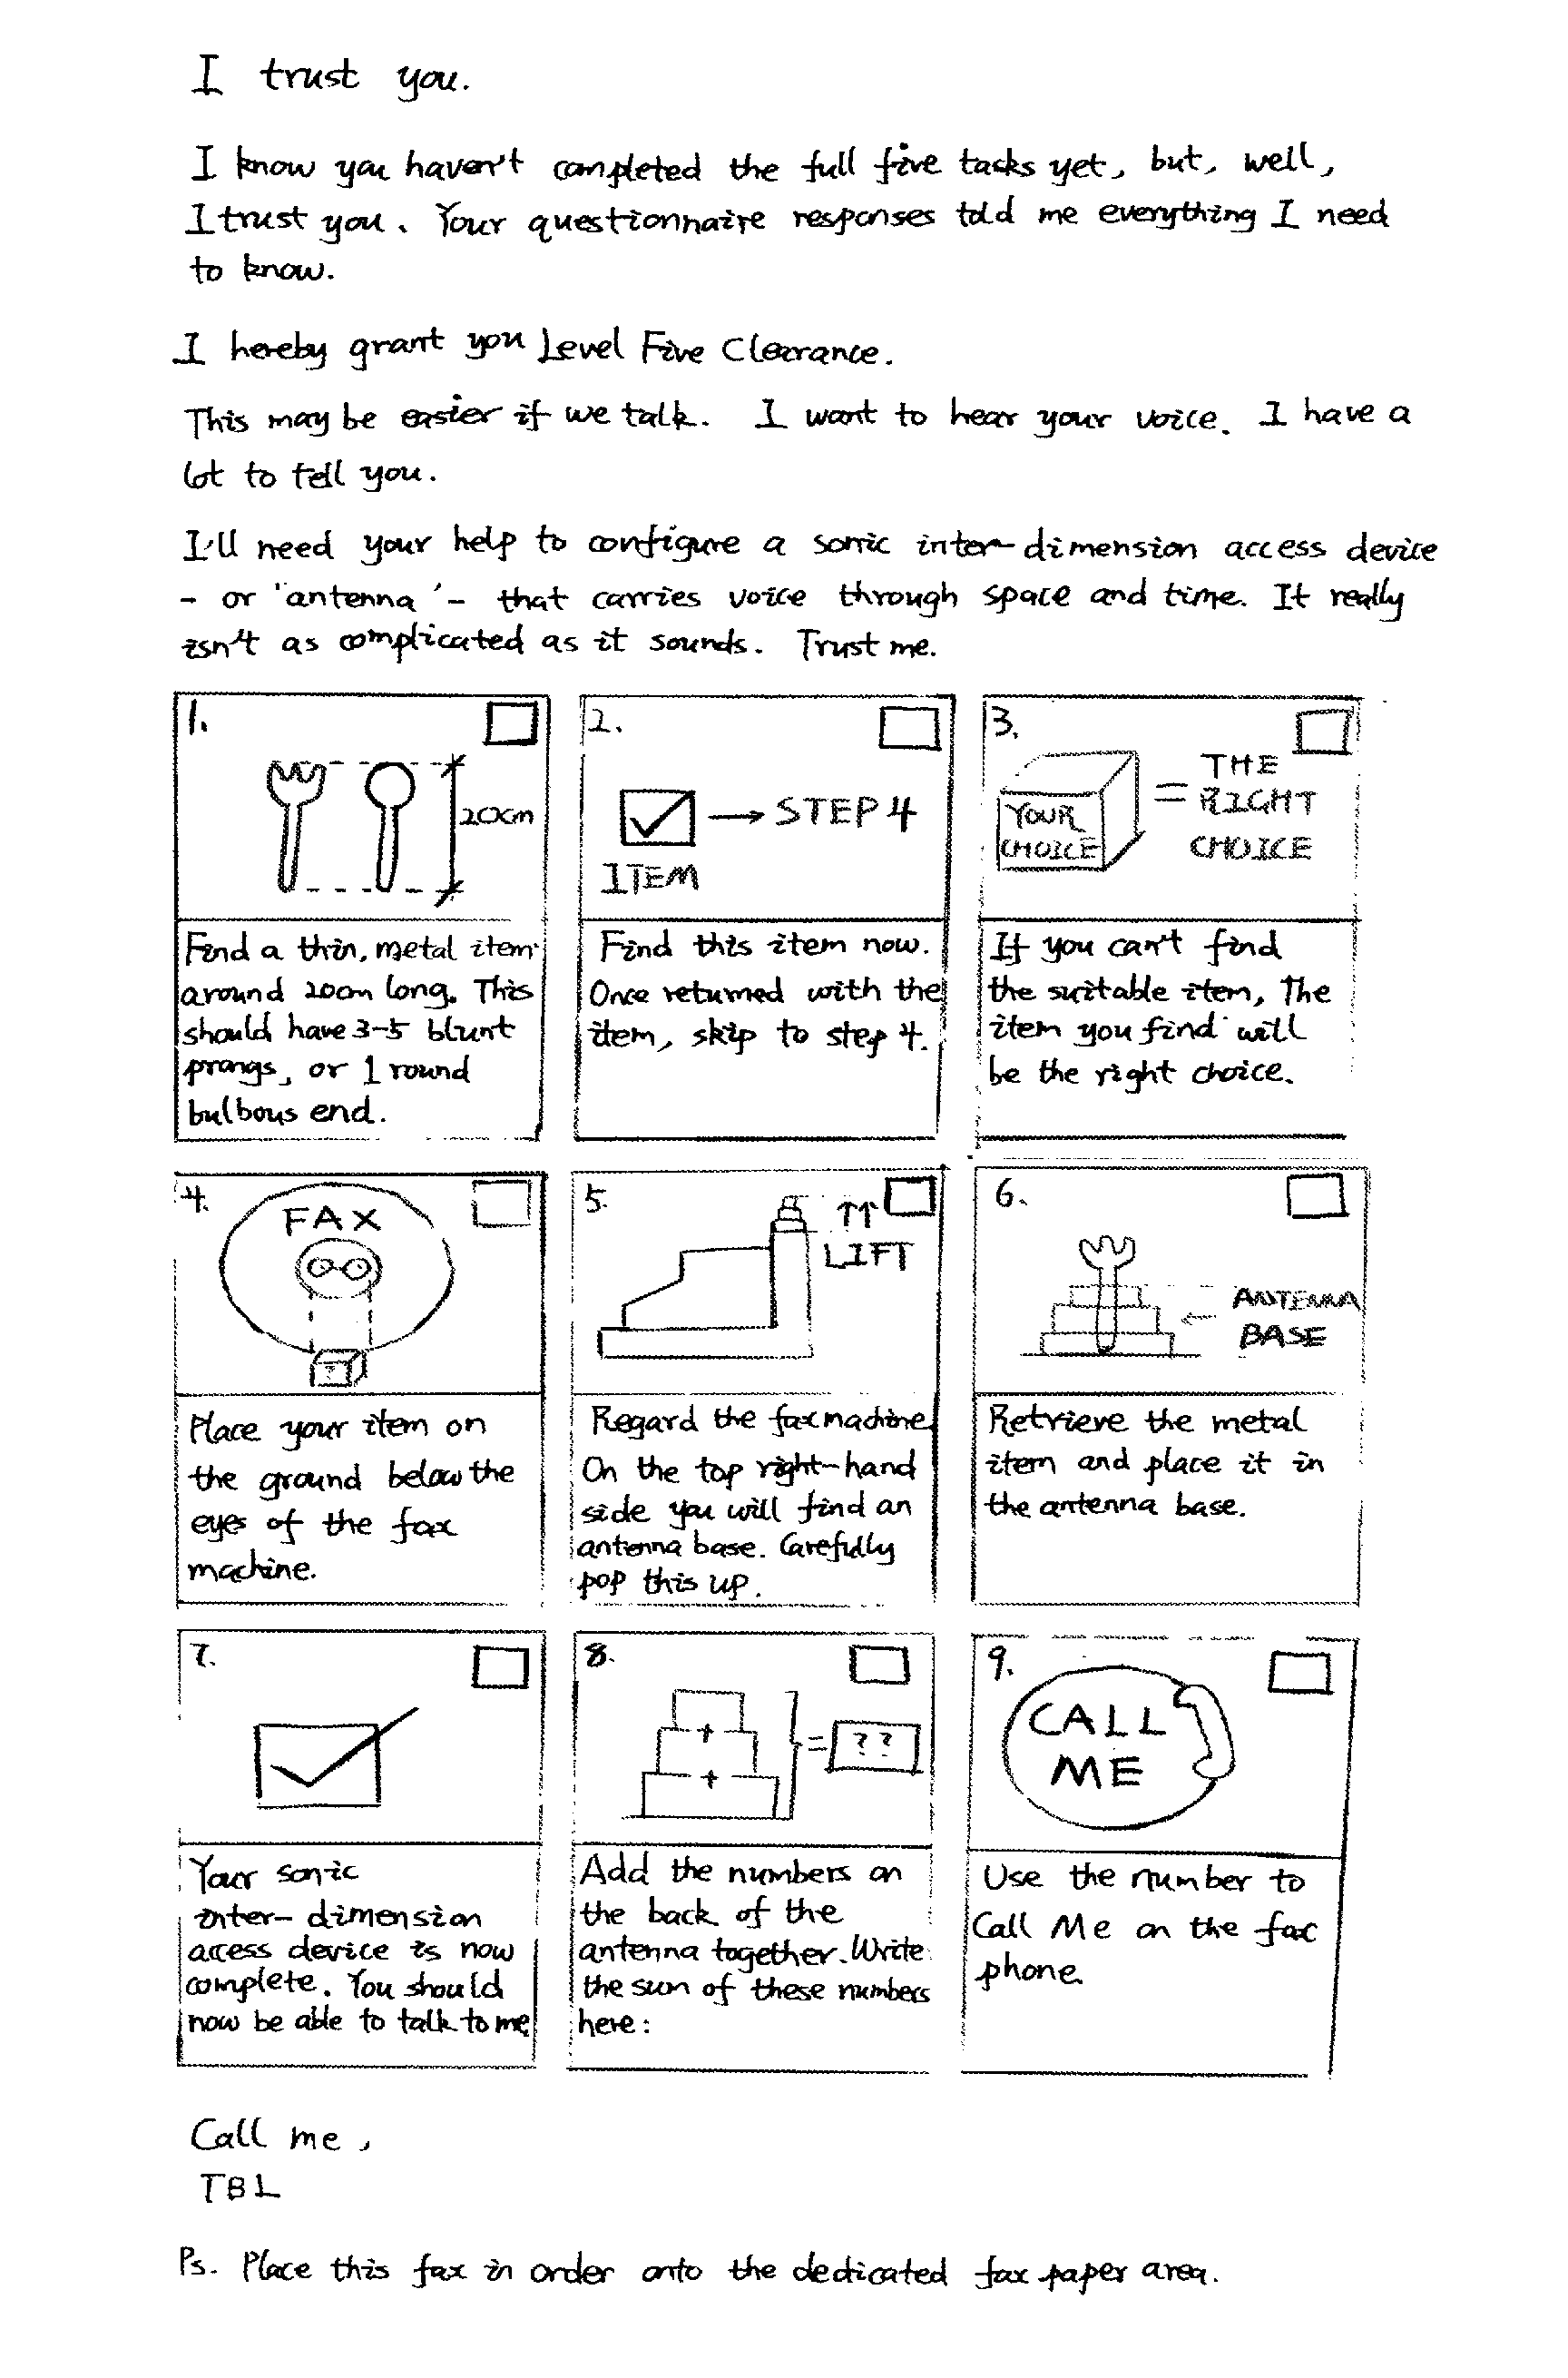 I trust you.
I know you haven't completed the full five tasks yet, but, well,
I trust you. Your questionnaire responses told me everything I need
to know.
I hereby grant you Level Five Clearance.
This may be easier if we talk. I want to hear your voice. I have a
lot to tell you.
I'll need your help to configure a sonic inter-dimension access device
- or 'antenna' - that carries voice through space and time. It really
isn't as complicated as it sounds. Trust me.
1.
20cm
Find a thin, metal item
around 20cm long. This
should have 3-5 blunt
prongs, or 1 round
bulbous end.
2.
→ STEP 4
ITEM
Find this item now.
Once returned with the
item, skip to step 4.
3.
YOUR
CHOICE
=
THE
RIGHT
CHOICE
If you can't find
the suitable item, The
item you find will
be the right choice.
4.
FAX
?
Place your item on
the ground below the
eyes of the fax
machine.
5.
↑↑
LIFT
Regard the fax machine.
On the top right-hand
side you will find an
antenna base. Carefully
pop this up.
6.
ANTENNA
BASE
Retrieve the metal
item and place it in
the antenna base.
7.
Your sonic
inter-dimension
access device is now
complete. You should
now be able to talk to me
8.
+
+
= ??
Add the numbers on
the back of the
antenna together. Write
the sum of these numbers
here:
9.
CALL
ME
Use the number to
Call Me on the fax
phone.
Call me,
TBL
Ps. Place this fax in order onto the dedicated fax paper area.